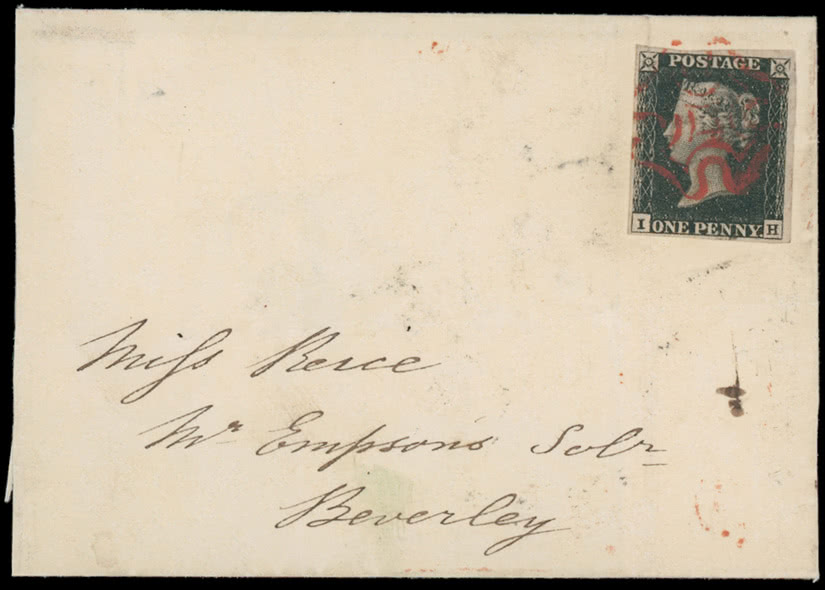 POSTAGE
I ONE PENNY. H
Miss
Mr Empsons Solr
Beverley